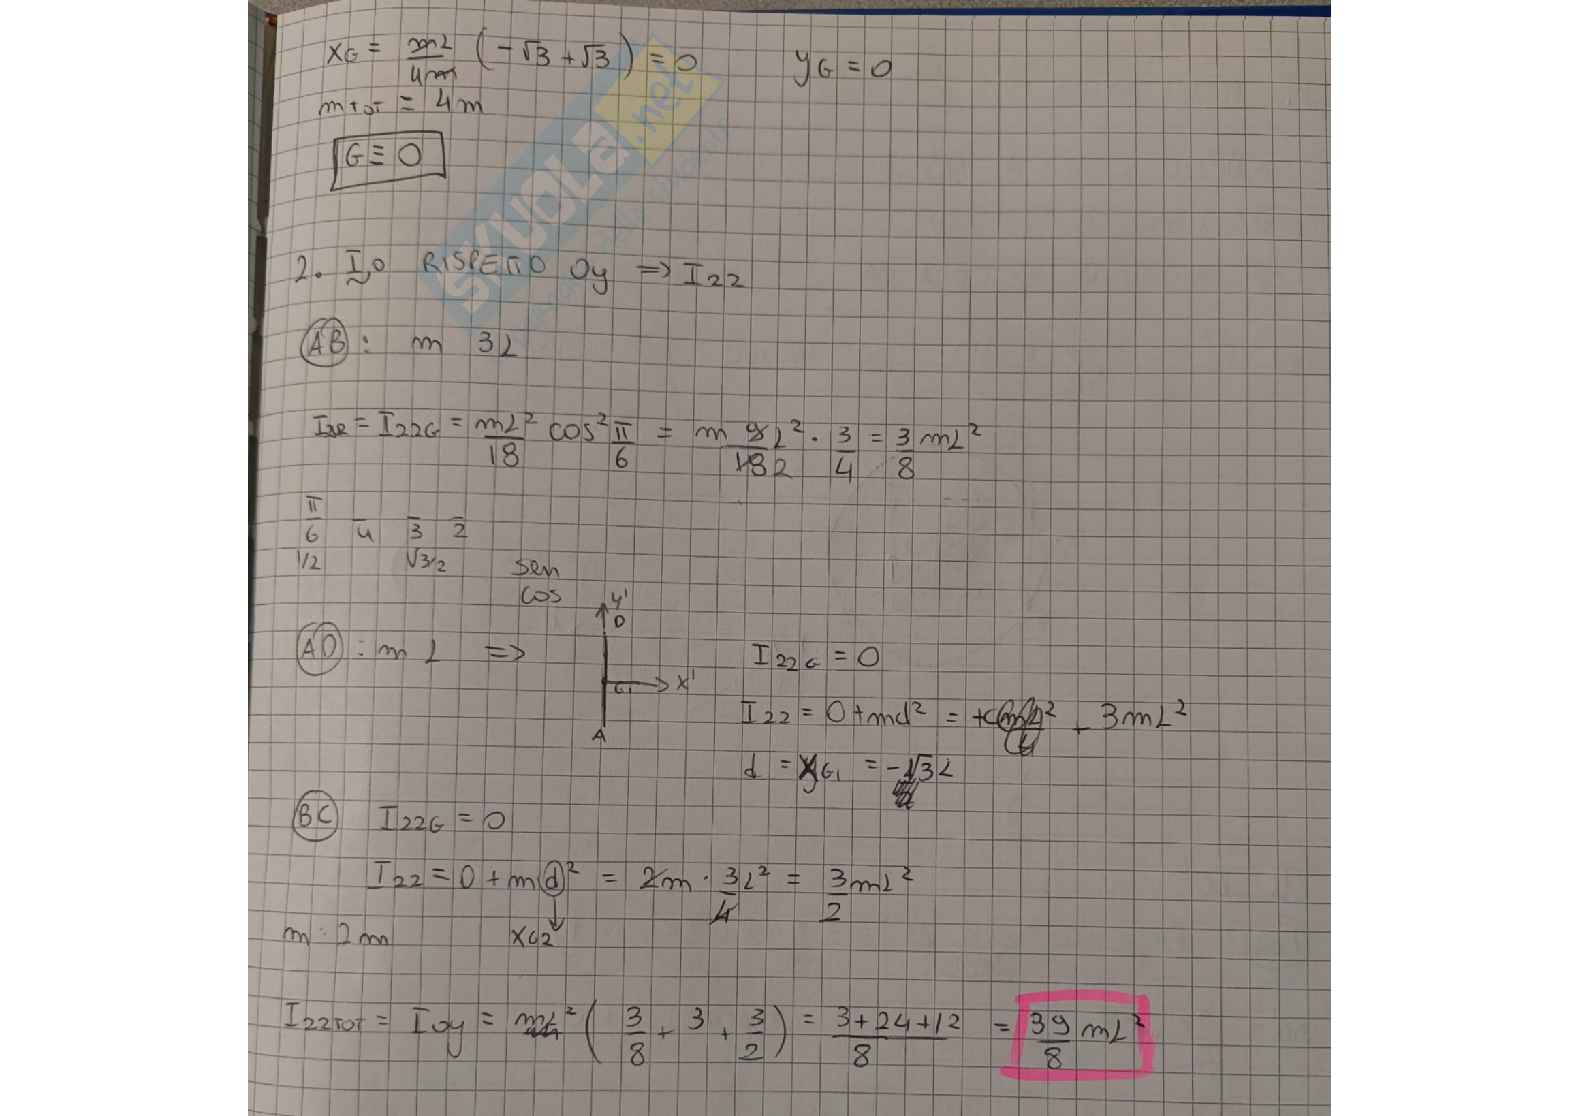 xG = mL/4m (-√3 + √3) = 0 yG = 0
mTOT = 4m
G ≡ O
SKUOLA.net
2. I,O RISPETTO Oy => I22
AB : m 3L
= I22G = mL²/18 cos² π/6 = m 9L²/182 · 3/4 = 3/8 mL²
π/6 4 3 2
1/2 √3/2 sen
cos
y'
D
AD : m L => I22G = 0
x'
G1
I22 = 0 + md² = 3mL²
A
d = xG1 = -√3L
BC I22G = 0
I22 = 0 + m d² = 2m · 3L²/4 = 3/2 mL²
m = 2m xG2
I22TOT = IOy = mL² ( 3/8 + 3 + 3/2 ) = 3+24+12/8 = 39/8 mL²